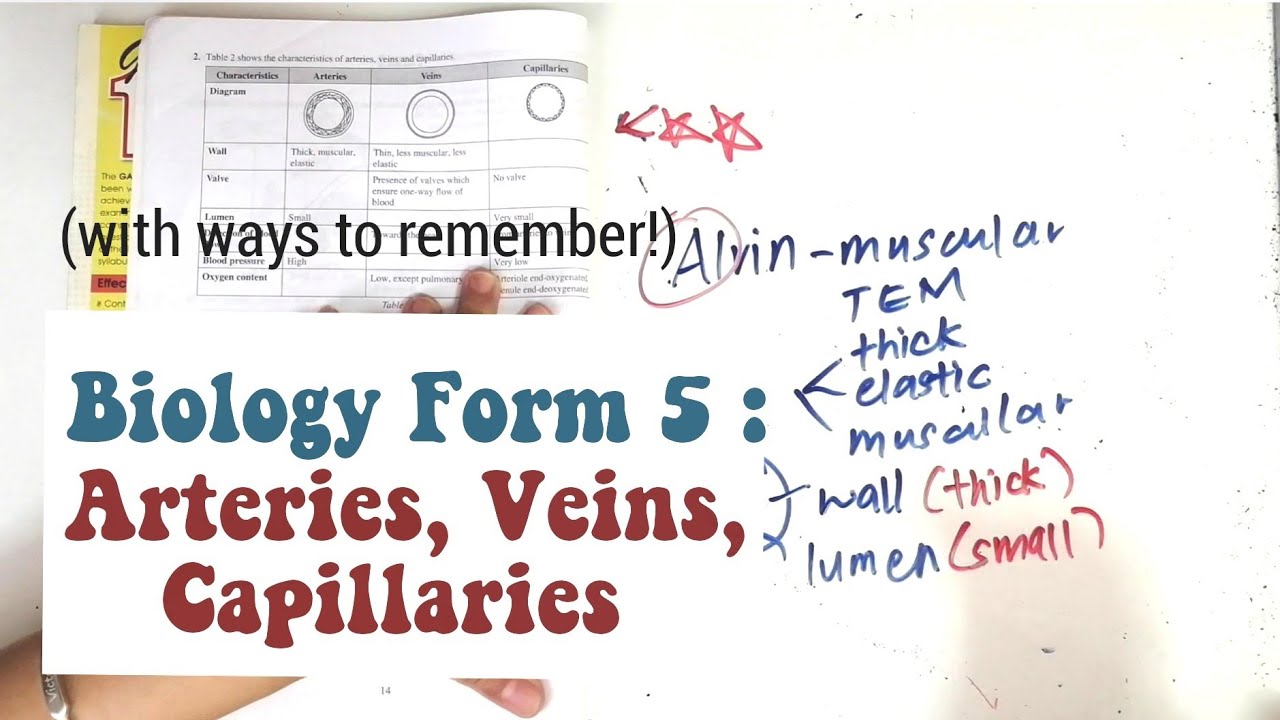 2. Table 2 shows the characteristics of arteries, veins and capillaries.
Characteristics Arteries Veins Capillaries
Diagram
Wall Thick, muscular, elastic Thin, less muscular, less elastic
Valve Presence of valves which ensure one-way flow of blood No valve
Lumen Small Very small
Blood pressure High Very low
Oxygen content Low, except pulmonary
Arteriole end-oxygenated
end-deoxygenated
Table
The GA
been
achiev
exam
syllabu
Effec
Cont
(with ways to remember!)
Biology Form 5 :
Arteries, Veins,
Capillaries
14
Alvin - muscular
TEM
thick
elastic
muscular
wall (thick)
lumen (small)